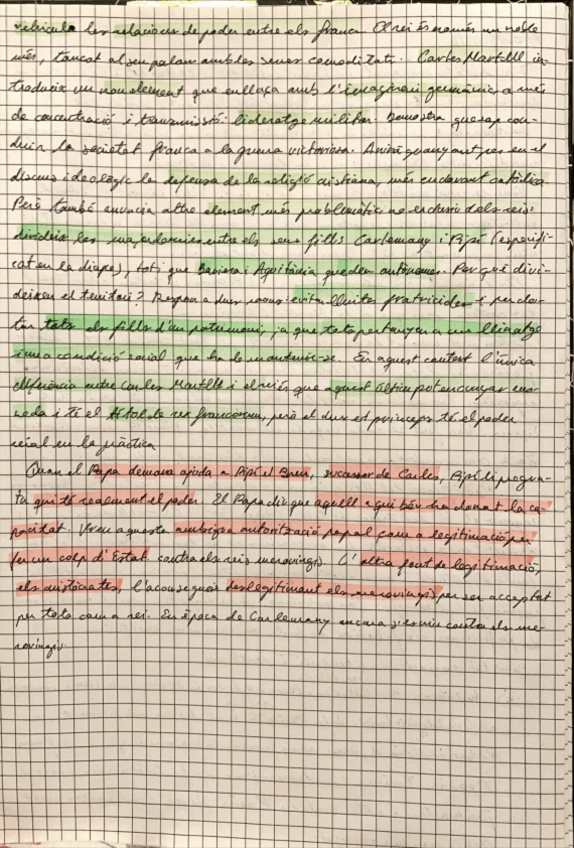 vehicula les relacions de poder entre els francs. El rei és només un noble
més, tancat al seu palau amb les seves comoditats. Carles Martell in-
trodueix un nou element que enllaça amb l'imaginari germànic, a més
de concentració i transmissió: lideratge militar. Demostra que sap con-
duir la societat franca a la guerra victoriosa. Anirà guanyant pes en el
discurs ideològic la defensa de la religió cristiana, més endavant catòlica.
Però també enuncia altre element més problemàtic no exclusiu dels reis:
dividir les majordomies entre els seus fills Carlemany i Pipí (especifi-
cat en la diapo), tot i que Baviera i Aquitània queden autònomes. Per què divi-
deixen el territori? Respon a dues raons: evitar lluites fratricides i per do-
tar tots els fills d'un patrimoni, ja que tots pertanyen a un llinatge
i una condició social que ha de mantenir-se. En aquest context l'única
diferència entre Carles Martell i el rei és que aquest últim pot encunyar mo-
neda i té el títol de rex francorum, però el dux et princeps té el poder
reial en la pràctica
Quan el Papa demana ajuda a Pipí el Breu, successor de Carles, Pipí li pregun-
ta qui té realment el poder. El Papa diu que aquell a qui Déu ha donat la ca-
pacitat. Veu aquesta ambigua autorització papal com a legitimació per
fer un colp d'Estat contra els reis merovingis. L'altra font de legitimació,
els aristòcrates, l'aconsegueix deslegitimant els merovingis per ser acceptat
per tots com a rei. En època de Carlemany encara s'escriu contra els me-
rovingis.